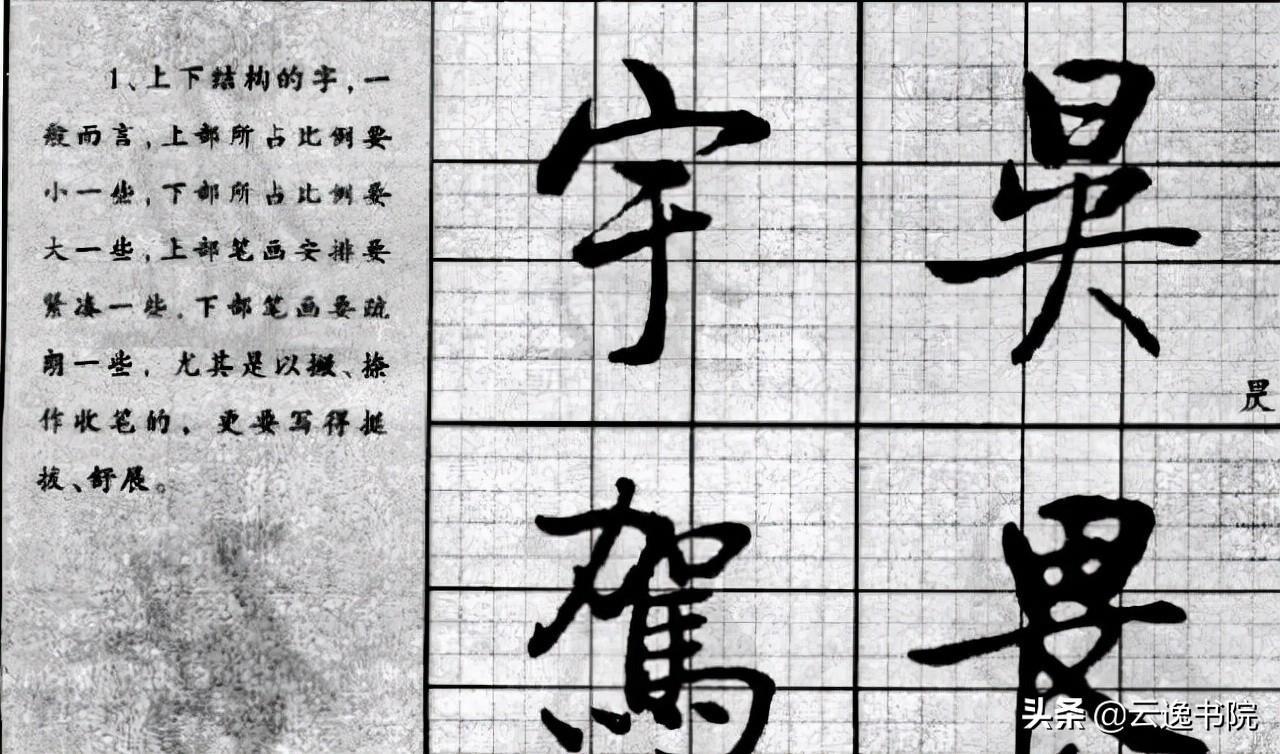 1、上下结构的字,一
般而言,上部所占比例要
小一些,下部所占比例要
大一些,上部笔画安排要
紧凑一些,下部笔画要疏
朗一些,尤其是以撇、捺
作收笔的,更要写得挺
拔、舒展。
宇
駕
畏
头条 @云逸书院